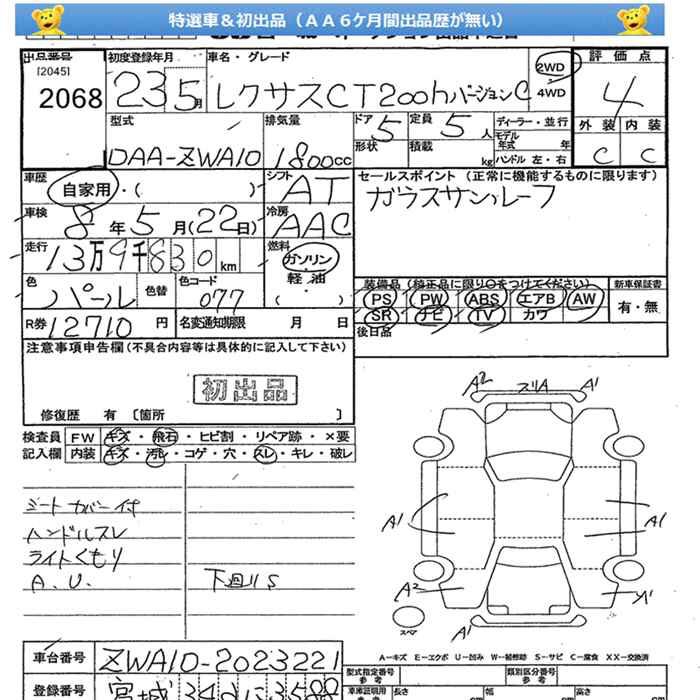 特選車＆初出品（ＡＡ６ケ月間出品歴が無い）
出品番号 初度登録年月 車名・グレード 2WD 4WD 評価点
[2045]
2068 23 5月 レクサスCT200hバージョンC 4
型式 排気量 ドア 5 定員 5人 ディーラー・並行 外装 内装
DAA-ZWA10 1800cc 形状 積載 kg モデル年式 年 C C
ハンドル 左・右
車歴 自家用・( ) シフト AT セールスポイント (正常に機能するものに限ります)
ガラスサンルーフ
車検 8年5月(22日) 冷房 AAC
走行 13万9千830km 燃料 ガソリン 軽油 ( )
色 パール 色替 色コード 077
装備品 (純正品に限り○をつけてください) 新車保証書
PS PW ABS エアB AW 有・無
SR ナビ TV カワ
R券 12710円 名変通知期限 月 日 後日品
注意事項申告欄(不具合内容等は具体的に記入して下さい)
初出品
修復歴 有 〔箇所 〕
検査員 FW キズ・飛石・ヒビ割・リペア跡・×要
記入欄 内装 キズ・汚れ・コゲ・穴・スレ・キレ・破レ
シートカバー付
ハンドルスレ
ライトくもり
A.U. 下廻りS
A2 スリA A1
A1 A1
A2
A1
スペア
A－キズ E－エクボ U－凹み W－補修跡 S－サビ C－腐食 XX－交換済
車台番号 ZWA10-2023221
型式指定番号 類別区分番号
登録番号 宮城
車庫証明用 参考 長さ cm 幅 cm 高さ cm